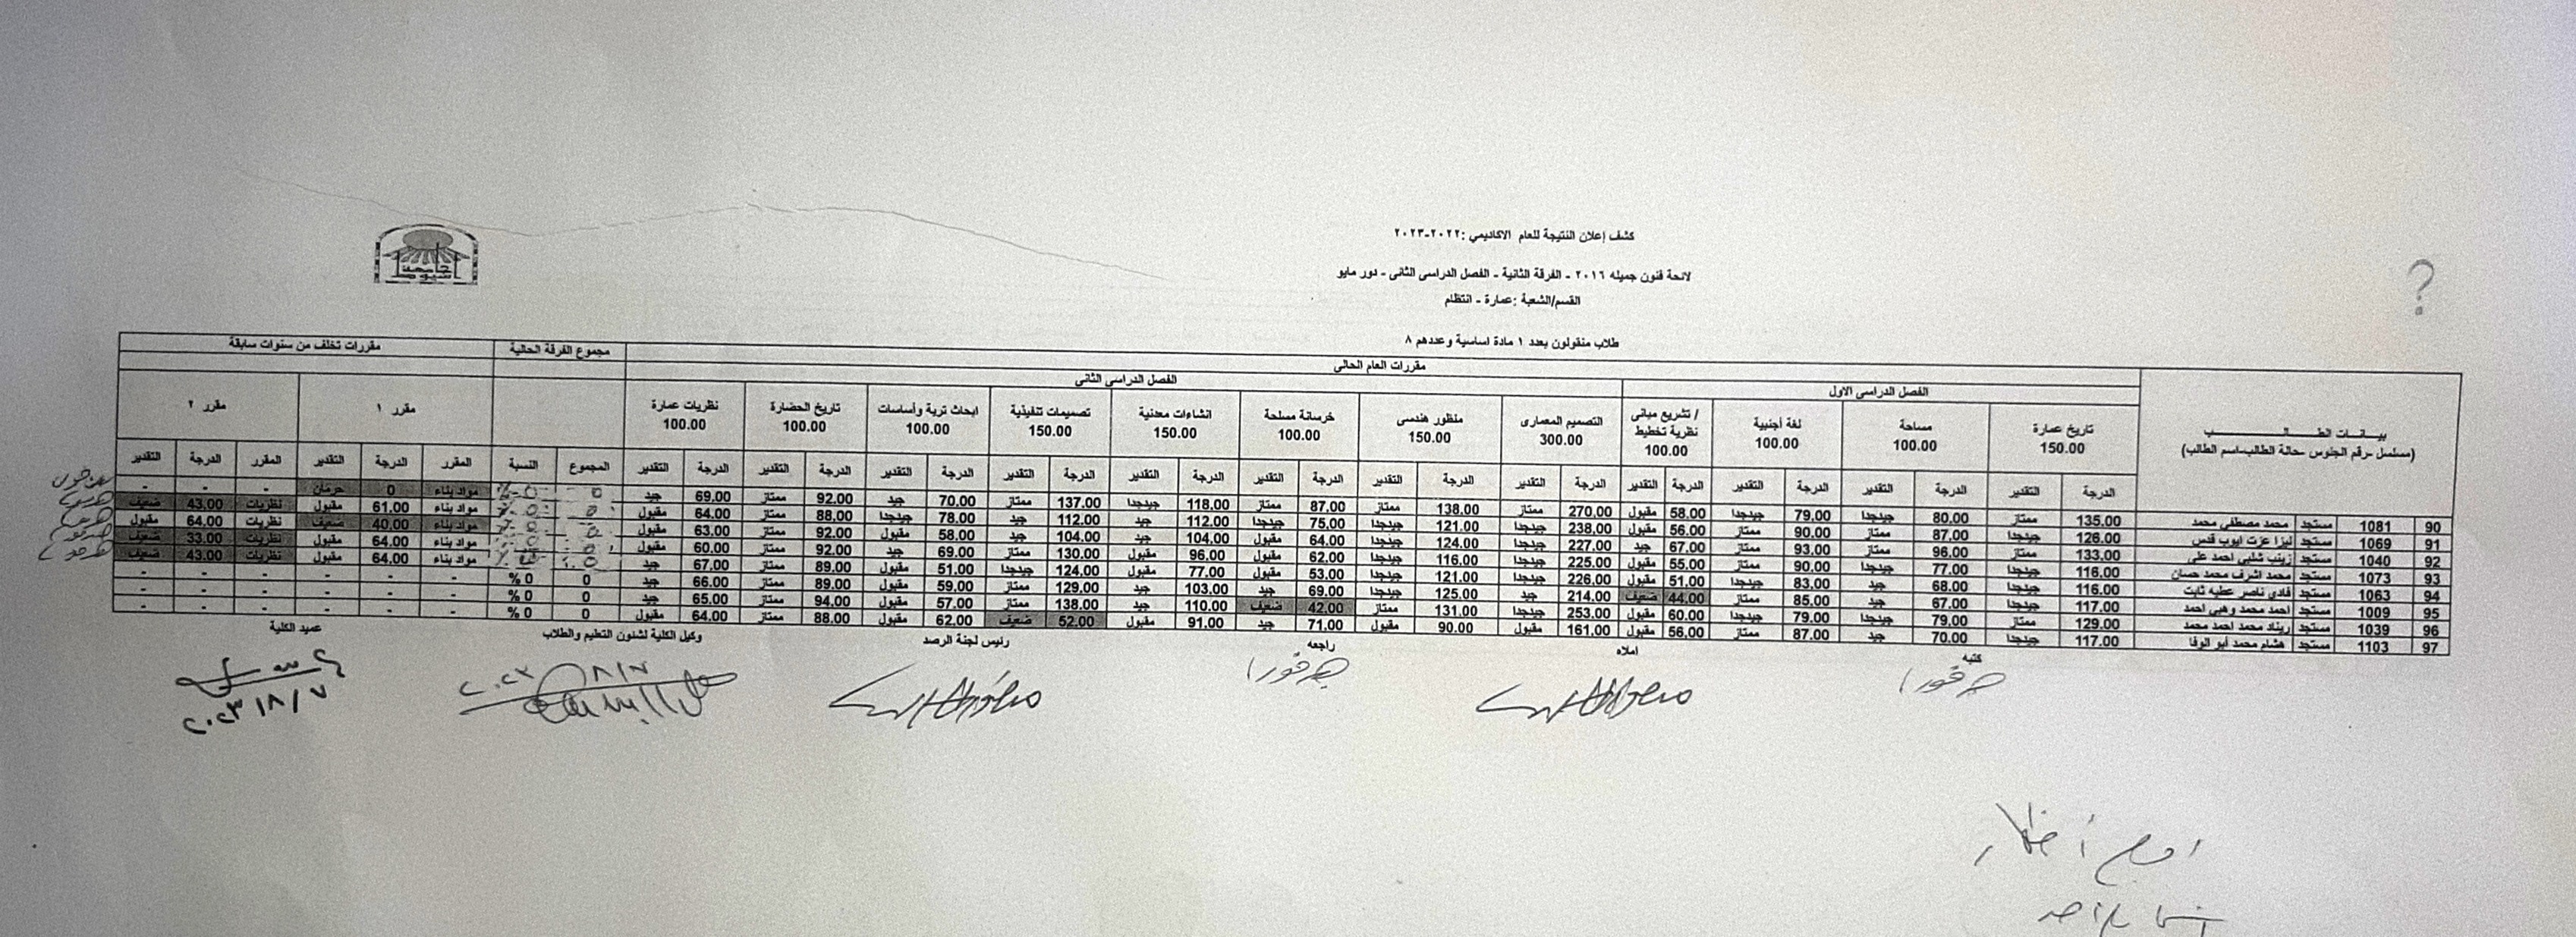 كشف إعلان النتيجة للعام الاكاديمي :٢٠٢٢-٢٠٢٣
لائحة فنون جميله ٢٠١٦ - الفرقة الثانية - الفصل الدراسى الثانى - دور مايو
القسم/الشعبة :عمارة - انتظام
طلاب منقولون بعدد ١ مادة اساسية وعددهم ٨
بيـــانـــات الطـــــالـــــــب (مسلسل -رقم الجلوس -حالة الطالب-اسم الطالب) مقررات العام الحالى مجموع الفرقة الحالية مقررات تخلف من سنوات سابقة
الفصل الدراسى الاول الفصل الدراسى الثانى
تاريخ عمارة 150.00 مساحة 100.00 لغة أجنبية 100.00 تشريع مبانى / نظرية تخطيط 100.00 التصميم المعمارى 300.00 منظور هندسى 150.00 خرسانة مسلحة 100.00 انشاءات معدنية 150.00 تصميمات تنفيذية 150.00 ابحاث تربة وأساسات 100.00 تاريخ الحضارة 100.00 نظريات عمارة 100.00 مقرر ١ مقرر ٢
الدرجة التقدير الدرجة التقدير الدرجة التقدير الدرجة التقدير الدرجة التقدير الدرجة التقدير الدرجة التقدير الدرجة التقدير الدرجة التقدير الدرجة التقدير الدرجة التقدير الدرجة التقدير المجموع النسبة المقرر الدرجة التقدير المقرر الدرجة التقدير
90 1081 مستجد محمد مصطفى محمد 135.00 ممتاز 80.00 جيدجدا 79.00 جيدجدا 58.00 مقبول 270.00 ممتاز 138.00 ممتاز 87.00 ممتاز 118.00 جيدجدا 137.00 ممتاز 70.00 جيد 92.00 ممتاز 69.00 جيد 0 مواد بناء 0 حرمان - - -
91 1069 مستجد ليزا عزت ايوب قدس 126.00 جيدجدا 87.00 ممتاز 90.00 ممتاز 56.00 مقبول 238.00 جيدجدا 121.00 جيدجدا 75.00 جيدجدا 112.00 جيد 112.00 جيد 78.00 جيدجدا 88.00 ممتاز 64.00 مقبول 0 مواد بناء 61.00 مقبول نظريات 43.00 ضعيف
92 1040 مستجد زينب شلبى احمد على 133.00 ممتاز 96.00 ممتاز 93.00 ممتاز 67.00 جيد 227.00 جيدجدا 124.00 جيدجدا 64.00 مقبول 104.00 جيد 104.00 جيد 58.00 مقبول 92.00 ممتاز 63.00 مقبول 0 مواد بناء 40.00 ضعيف نظريات 64.00 مقبول
93 1073 مستجد محمد اشرف محمد حسان 116.00 جيدجدا 77.00 جيدجدا 90.00 ممتاز 55.00 مقبول 225.00 جيدجدا 116.00 جيدجدا 62.00 مقبول 96.00 مقبول 130.00 ممتاز 69.00 جيد 92.00 ممتاز 60.00 مقبول 0 مواد بناء 64.00 مقبول نظريات 33.00 ضعيف
94 1063 مستجد فادي ناصر عطيه ثابت 116.00 جيدجدا 68.00 جيد 83.00 جيدجدا 51.00 مقبول 226.00 جيدجدا 121.00 جيدجدا 53.00 مقبول 77.00 مقبول 124.00 جيدجدا 51.00 مقبول 89.00 ممتاز 67.00 جيد 0 مواد بناء 64.00 مقبول نظريات 43.00 ضعيف
95 1009 مستجد احمد محمد وهبي احمد 117.00 جيدجدا 67.00 جيد 85.00 ممتاز 44.00 ضعيف 214.00 جيد 125.00 جيدجدا 69.00 جيد 103.00 جيد 129.00 ممتاز 59.00 مقبول 89.00 ممتاز 66.00 جيد 0 % 0 - - - - - -
96 1039 مستجد ريناد محمد احمد محمد 129.00 ممتاز 79.00 جيدجدا 79.00 جيدجدا 60.00 مقبول 253.00 جيدجدا 131.00 ممتاز 42.00 ضعيف 110.00 جيد 138.00 ممتاز 57.00 مقبول 94.00 ممتاز 65.00 جيد 0 % 0 - - - - - -
97 1103 مستجد هشام محمد أبو الوفا 117.00 جيدجدا 70.00 جيد 87.00 ممتاز 56.00 مقبول 161.00 مقبول 90.00 مقبول 71.00 جيد 91.00 مقبول 52.00 ضعيف 62.00 مقبول 88.00 ممتاز 64.00 مقبول 0 % 0 - - - - - -
كتبه املاه راجعه رئيس لجنة الرصد وكيل الكلية لشئون التعليم والطلاب عميد الكلية
٢٠٢٣/٨/٧
?